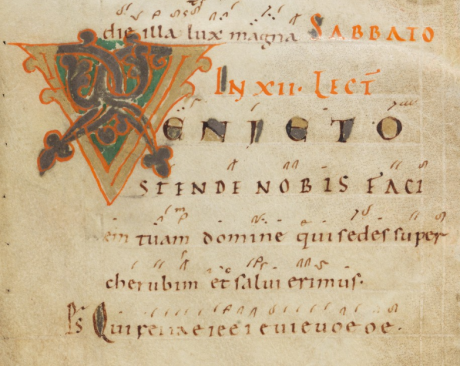 die illa lux magna SABBATO
IN XII· LECT
VENI ET O
STENDE NOBIS FACI
em tuam domine qui sedes super
cherubim et salui erimus·
Ps Qui